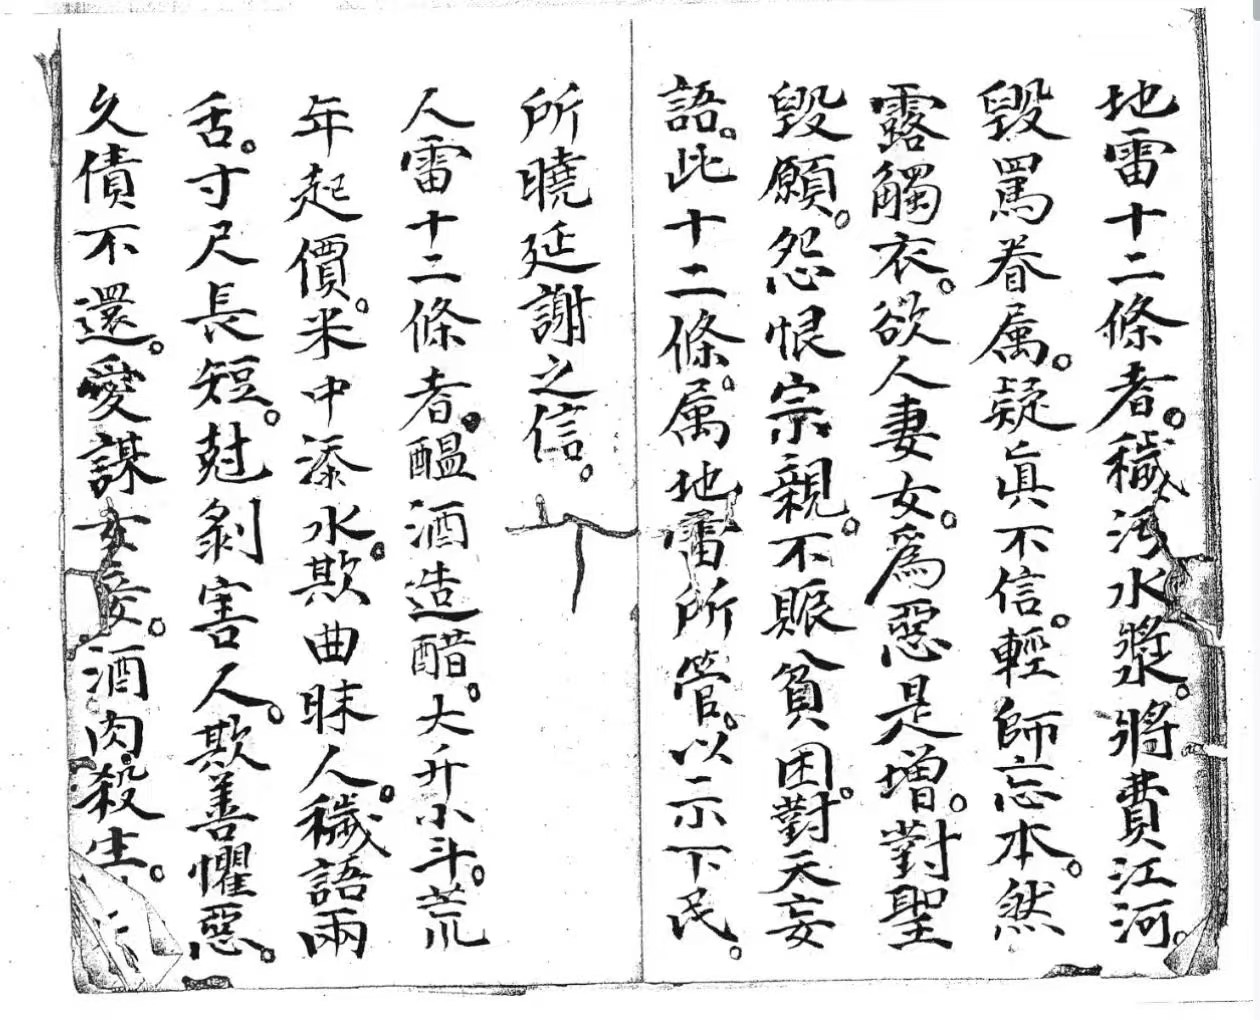 地雷十二條者。穢污水漿。將費江河。
毀罵眷属。疑眞不信。輕師忘本。然
露觸衣。欲人妻女。爲惡是增。對聖
毀願。怨恨宗親。不賑貧困。對天妄
語。此十二條。属地雷所管。以示下民。
所曉延謝之信。
人雷十二條者。醖酒造醋。大升小斗。荒
年起價。米中添水。欺曲昧人。穢語兩
舌。寸尺長短。尅剝害人。欺善懼惡。
久債不還。愛謀女妾。酒肉殺生。